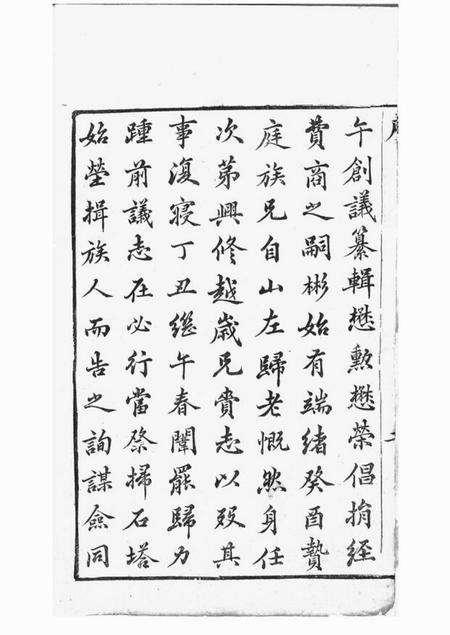 午創議纂輯懋勲懋榮倡捐經
費商之嗣彬始有端緒癸酉贄
庭族兄自山左歸老慨然身任
次第興修越歲兄賫志以殁其
事復寢丁丑繼午春闈罷歸力
踵前議志在必行當祭掃石塔
始塋揖族人而告之詢謀僉同